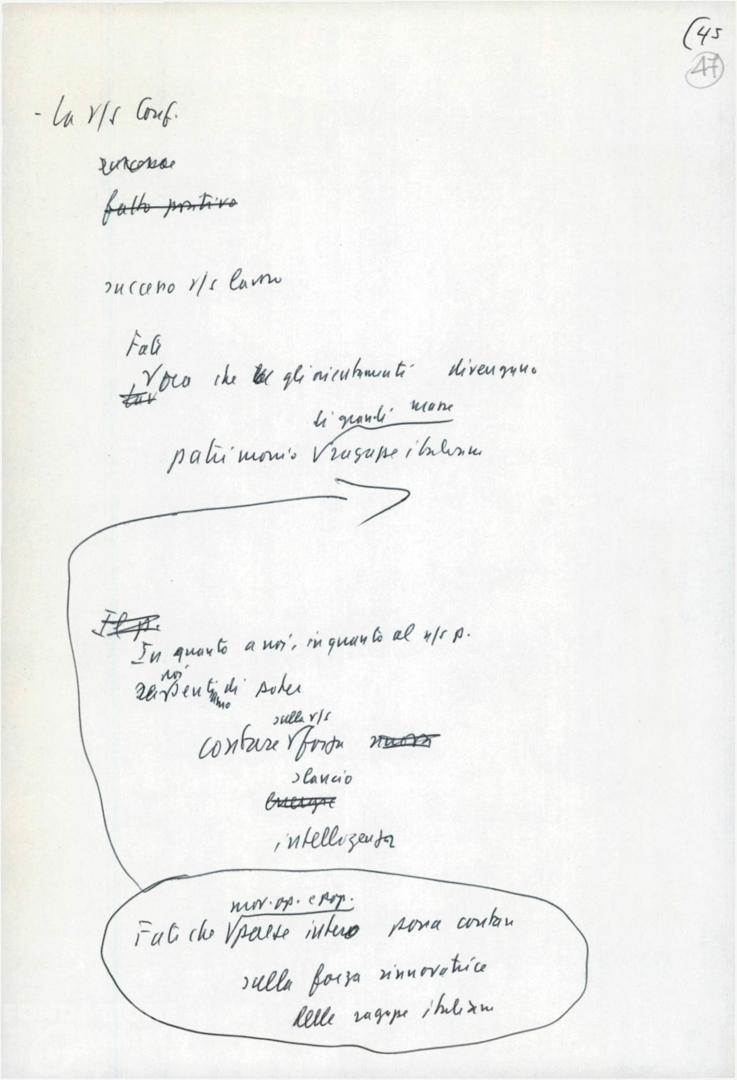 (45
47
- La v/s Conf.
successo
fatto positivo
successo v/s lavoro
Fate
voco che gli orientamenti divengano
di grandi masse
patrimonio ragazze italiane
Il p.
In quanto a noi, in quanto al n/s p.
noi
sentiamo di poter
sulla v/s
contare forza nuova
slancio
energie
intelligenza
mov. op. e pop.
Fate che paese intero possa contare
sulla forza rinnovatrice
delle ragazze italiane